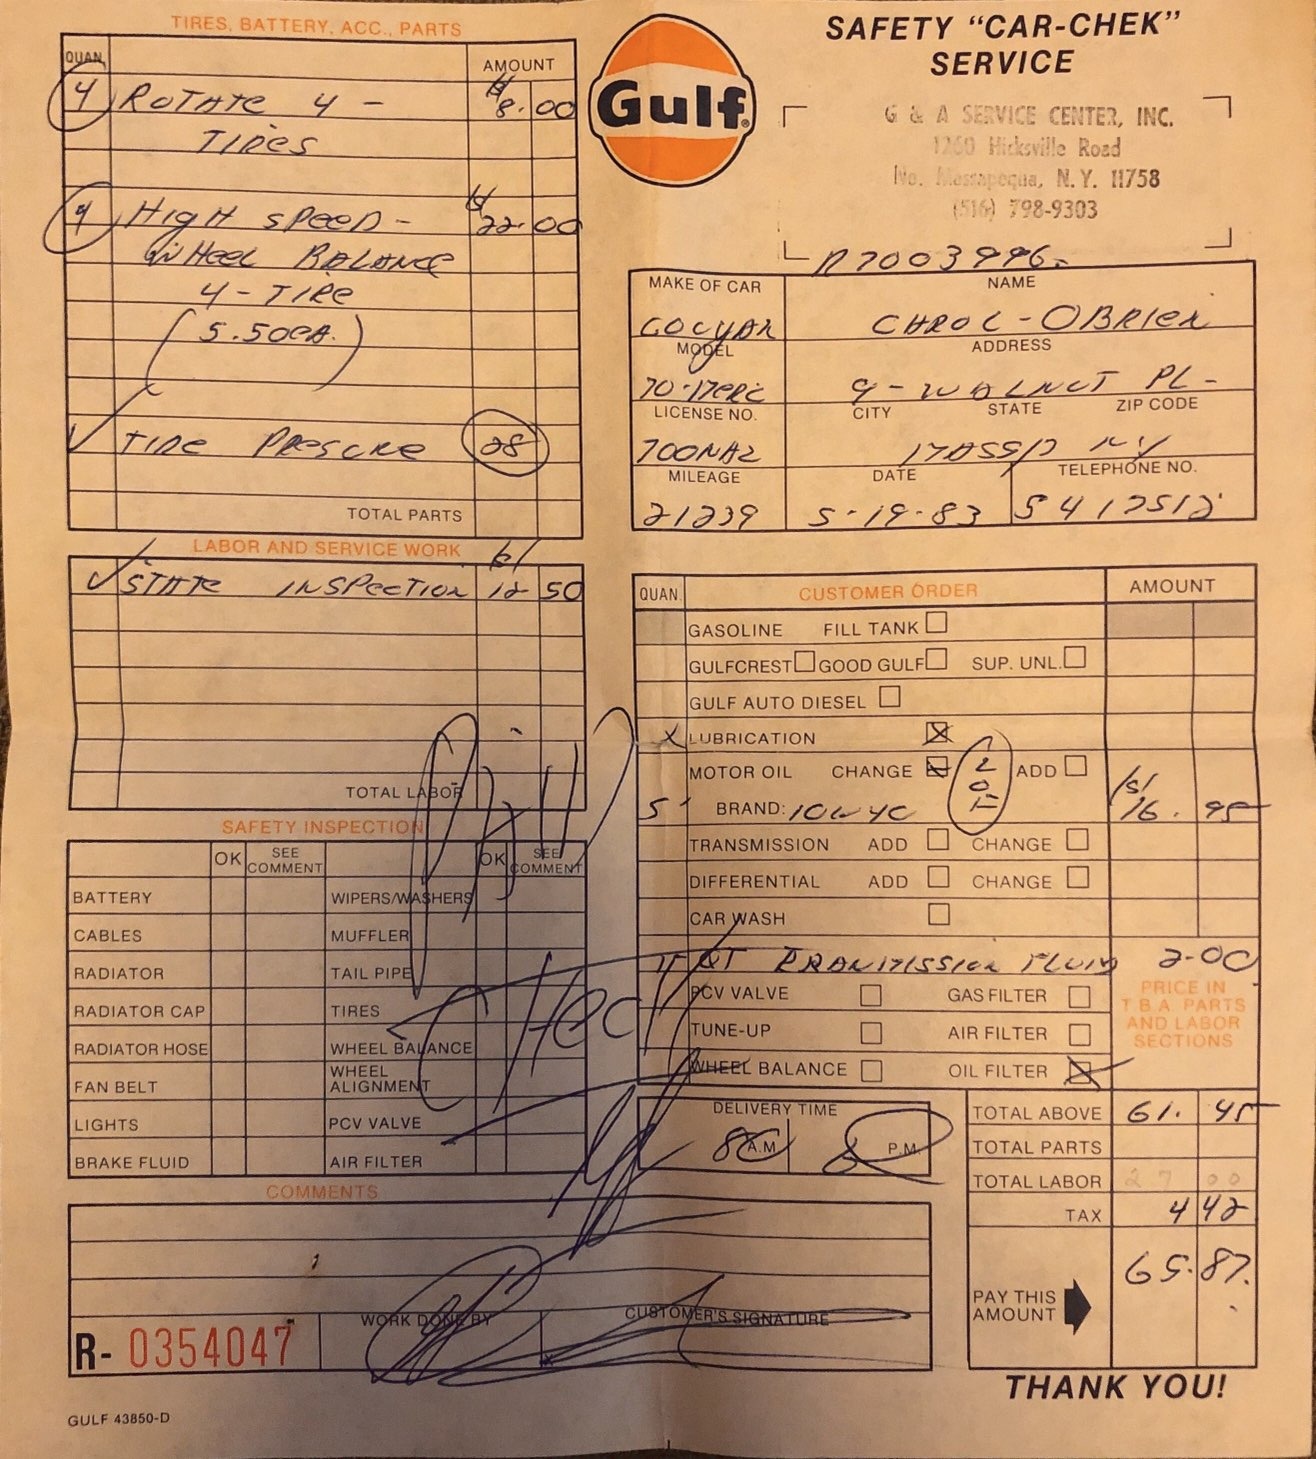 TIRES, BATTERY, ACC., PARTS
QUAN. AMOUNT
4 ROTATE 4 - 8.00
TIRES
4 HIGH SPEED - 22.00
WHEEL BALANCE
4 - TIRE
(5.50 EA.)
TIRE PRESCRE 28
TOTAL PARTS
LABOR AND SERVICE WORK
STATE INSPECTION 12 50
TOTAL LABOR
SAFETY INSPECTION
OK SEE COMMENT OK SEE COMMENT
BATTERY WIPERS/WASHERS
CABLES MUFFLER
RADIATOR TAIL PIPE
RADIATOR CAP TIRES
RADIATOR HOSE WHEEL BALANCE
FAN BELT WHEEL ALIGNMENT
LIGHTS PCV VALVE
BRAKE FLUID AIR FILTER
COMMENTS
R- 0354047
WORK DONE BY
CUSTOMER'S SIGNATURE
GULF 43850-D
Gulf
SAFETY "CAR-CHEK"
SERVICE
G & A SERVICE CENTER, INC.
1260 Hicksville Road
No. Massapequa, N.Y. 11758
(516) 798-9303
MAKE OF CAR NAME
CHROL - OBRIEN
MODEL ADDRESS
9 - WALNUT PL -
LICENSE NO. CITY STATE ZIP CODE
NY
MILEAGE DATE TELEPHONE NO.
21239 5-19-83 5417512
QUAN. CUSTOMER ORDER AMOUNT
GASOLINE FILL TANK
GULFCREST GOOD GULF SUP. UNL.
GULF AUTO DIESEL
X LUBRICATION
MOTOR OIL CHANGE ADD
5 BRAND: 10W40 16.95
TRANSMISSION ADD CHANGE
DIFFERENTIAL ADD CHANGE
CAR WASH
1 QT TRANMISSION FLUID 2-00
PCV VALVE GAS FILTER
TUNE-UP AIR FILTER
WHEEL BALANCE OIL FILTER
PRICE IN
T.B.A. PARTS
AND LABOR
SECTIONS
Check
DELIVERY TIME
A.M. P.M.
TOTAL ABOVE 61.45
TOTAL PARTS
TOTAL LABOR 27 00
TAX 4 42
PAY THIS
AMOUNT 65.87
THANK YOU!